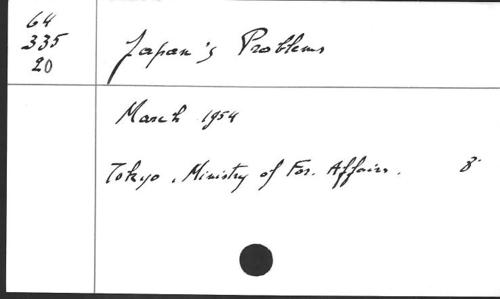 64
335
20
Japan's Problems
March 1954
Tokyo, Ministry of For. Affairs. 8°